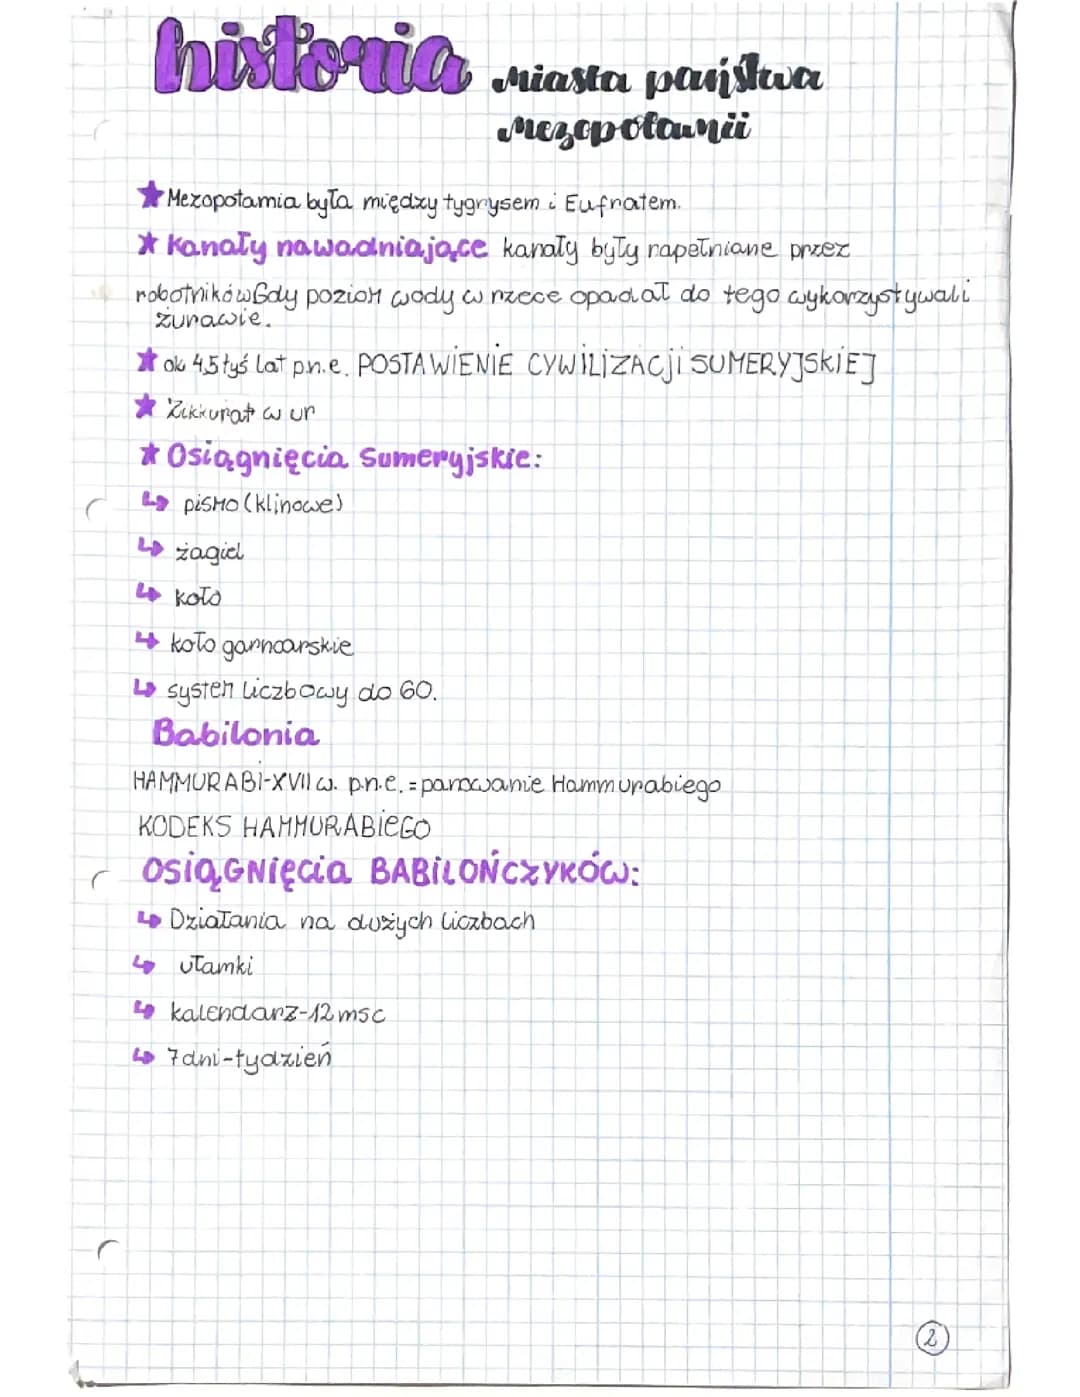 historia Miasta państwa
Mezopotamii
Mezopotamia była między tygrysem i Eufratem.
Kanały nawadniające kanały były napełniane przez
robotników Gdy poziom wody w rzece opadał do tego wykorzystywali
żurawie.
ok 4,5 tyś lat p.n.e. POSTAWIENIE CYWiLiZACji SUMERYJSKiEJ
Zikkurat w ur
Osiągnięcia Sumeryjskie:
pismo (klinowe)
żagiel
koło
koło garncarskie
system liczbowy do 60.
Babilonia
HAMMURABI-XVII w. p.n.e. = panowanie Hammurabiego
KODEKS HAMMURABIEGO
OSiĄGNięcia BABiLOŃCZYKÓW:
Działania na dużych liczbach
ułamki
kalendarz-12 msc
7 dni-tydzień
2